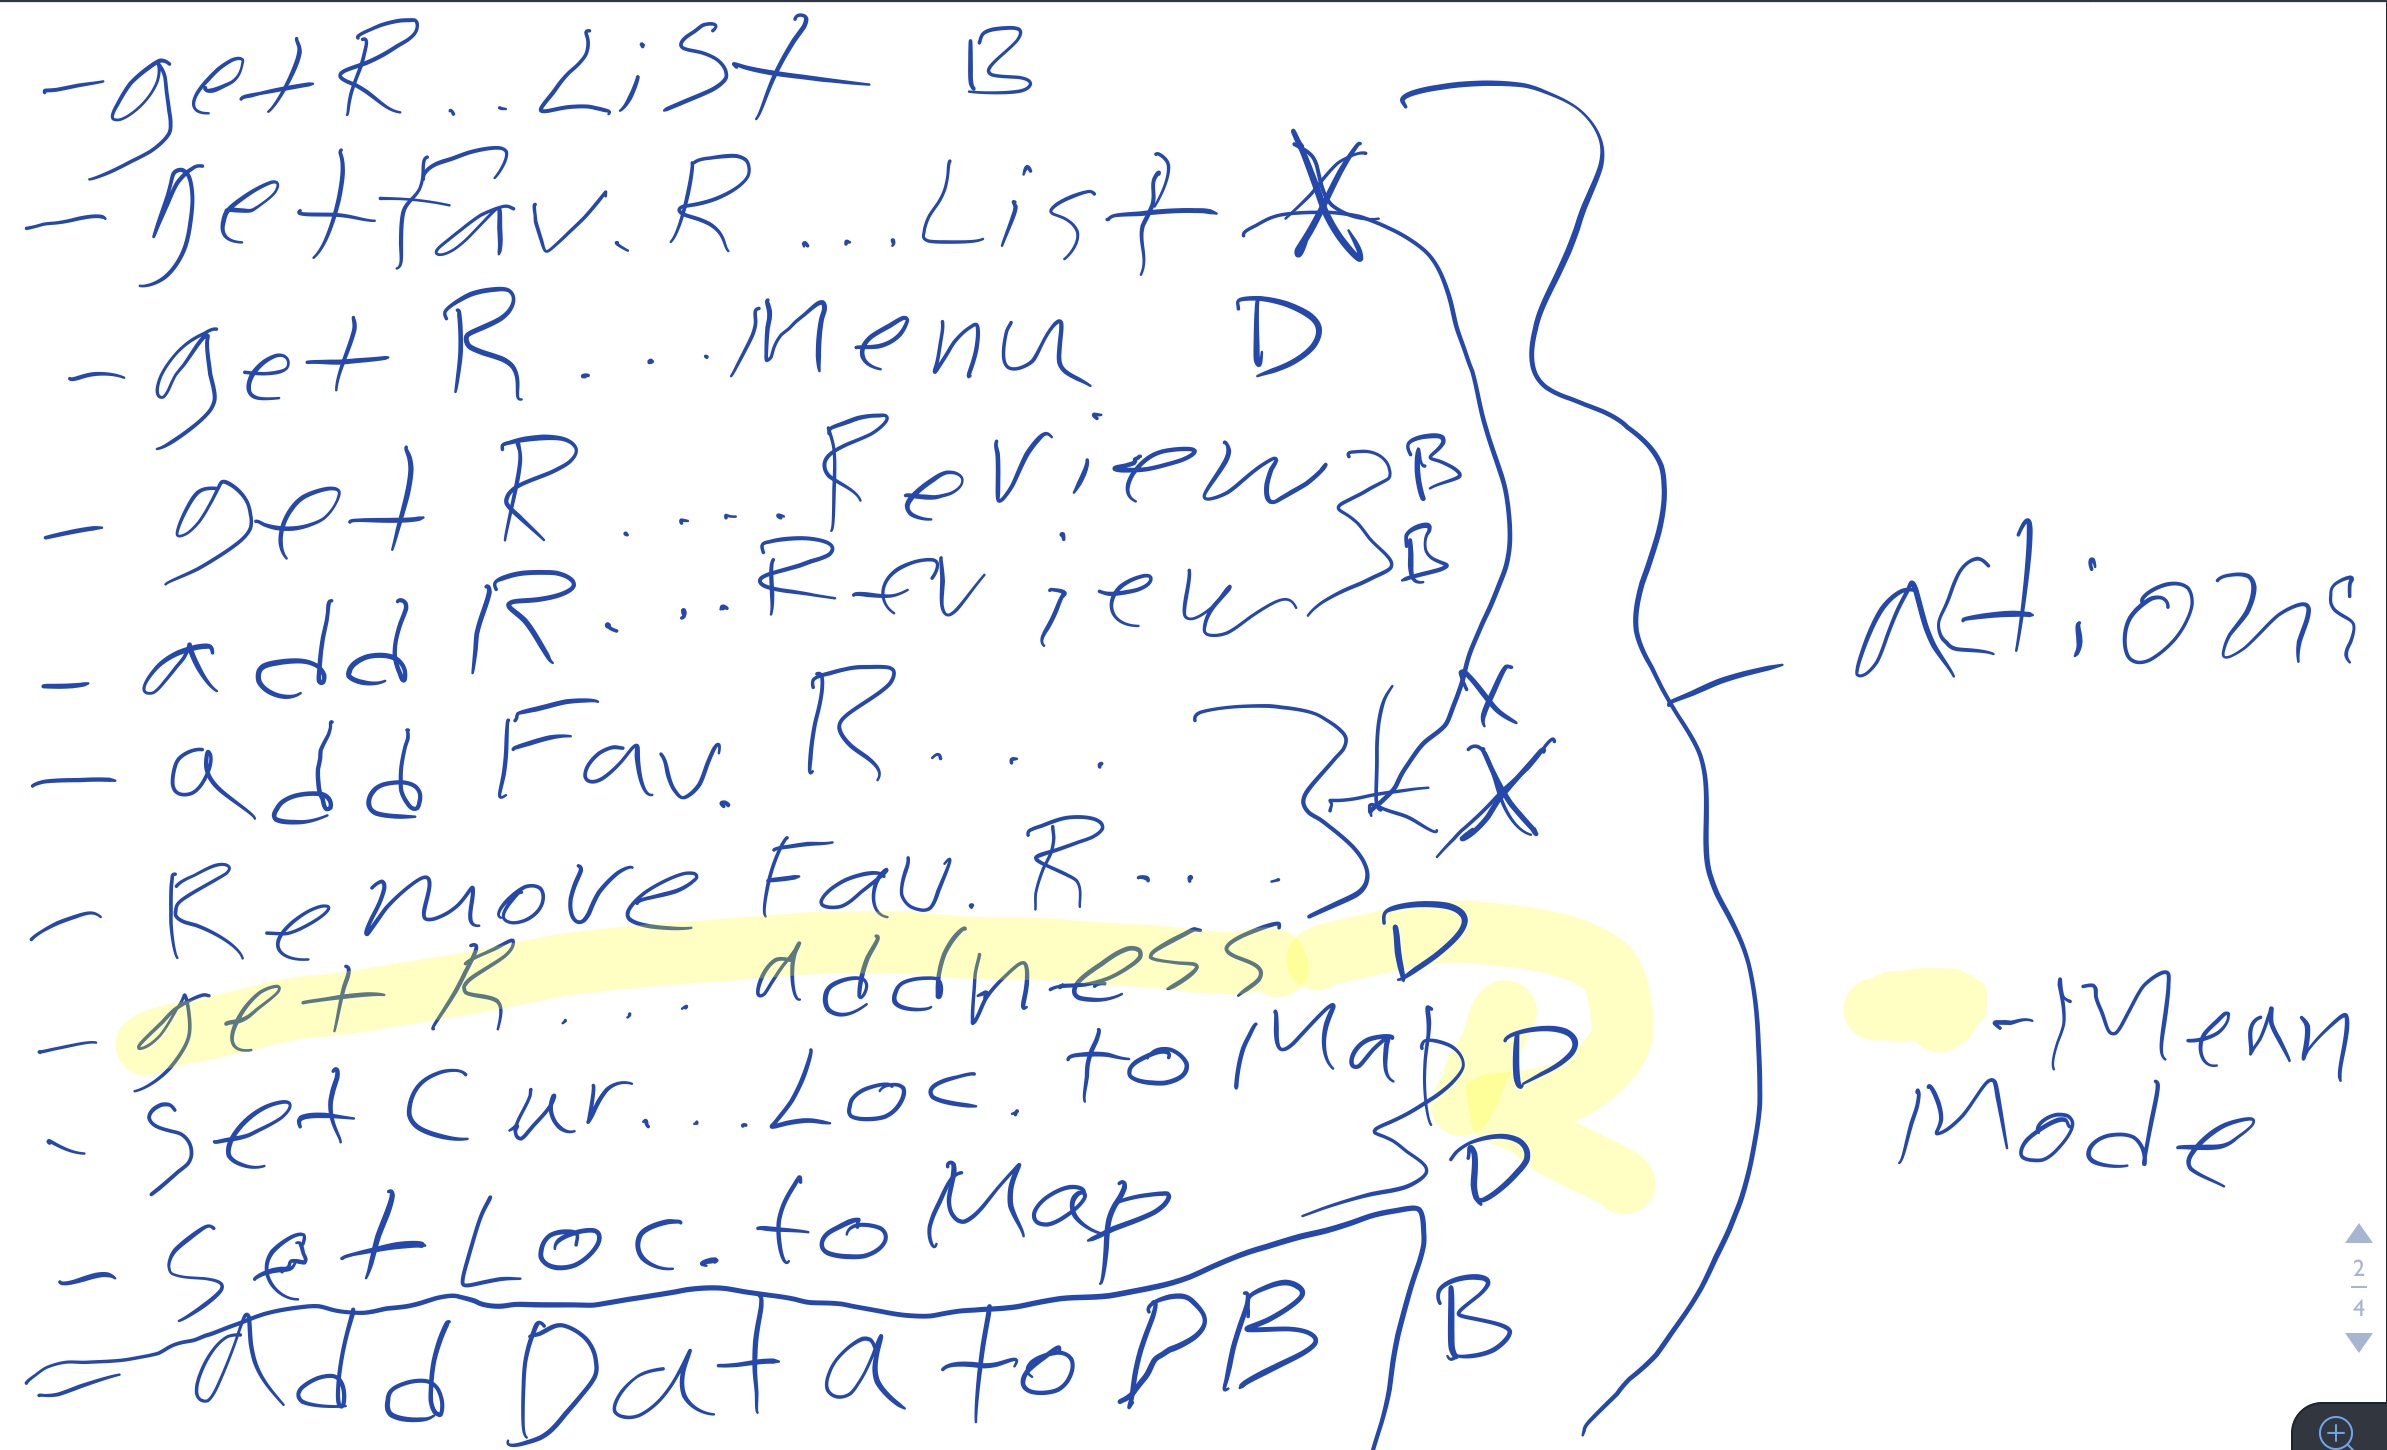 - getR... List B
- getFav. R... List X
- get R... Menu D
- get R.... Review B
- add R.... Review B
- add Fav. R.... K X X
- Remove Fav. R...
- get R.... address D
- set Cur... Loc. to Map D
- set Loc. to Map D
- Add Data to DB B
Actions
- Mean
Mode
2
4